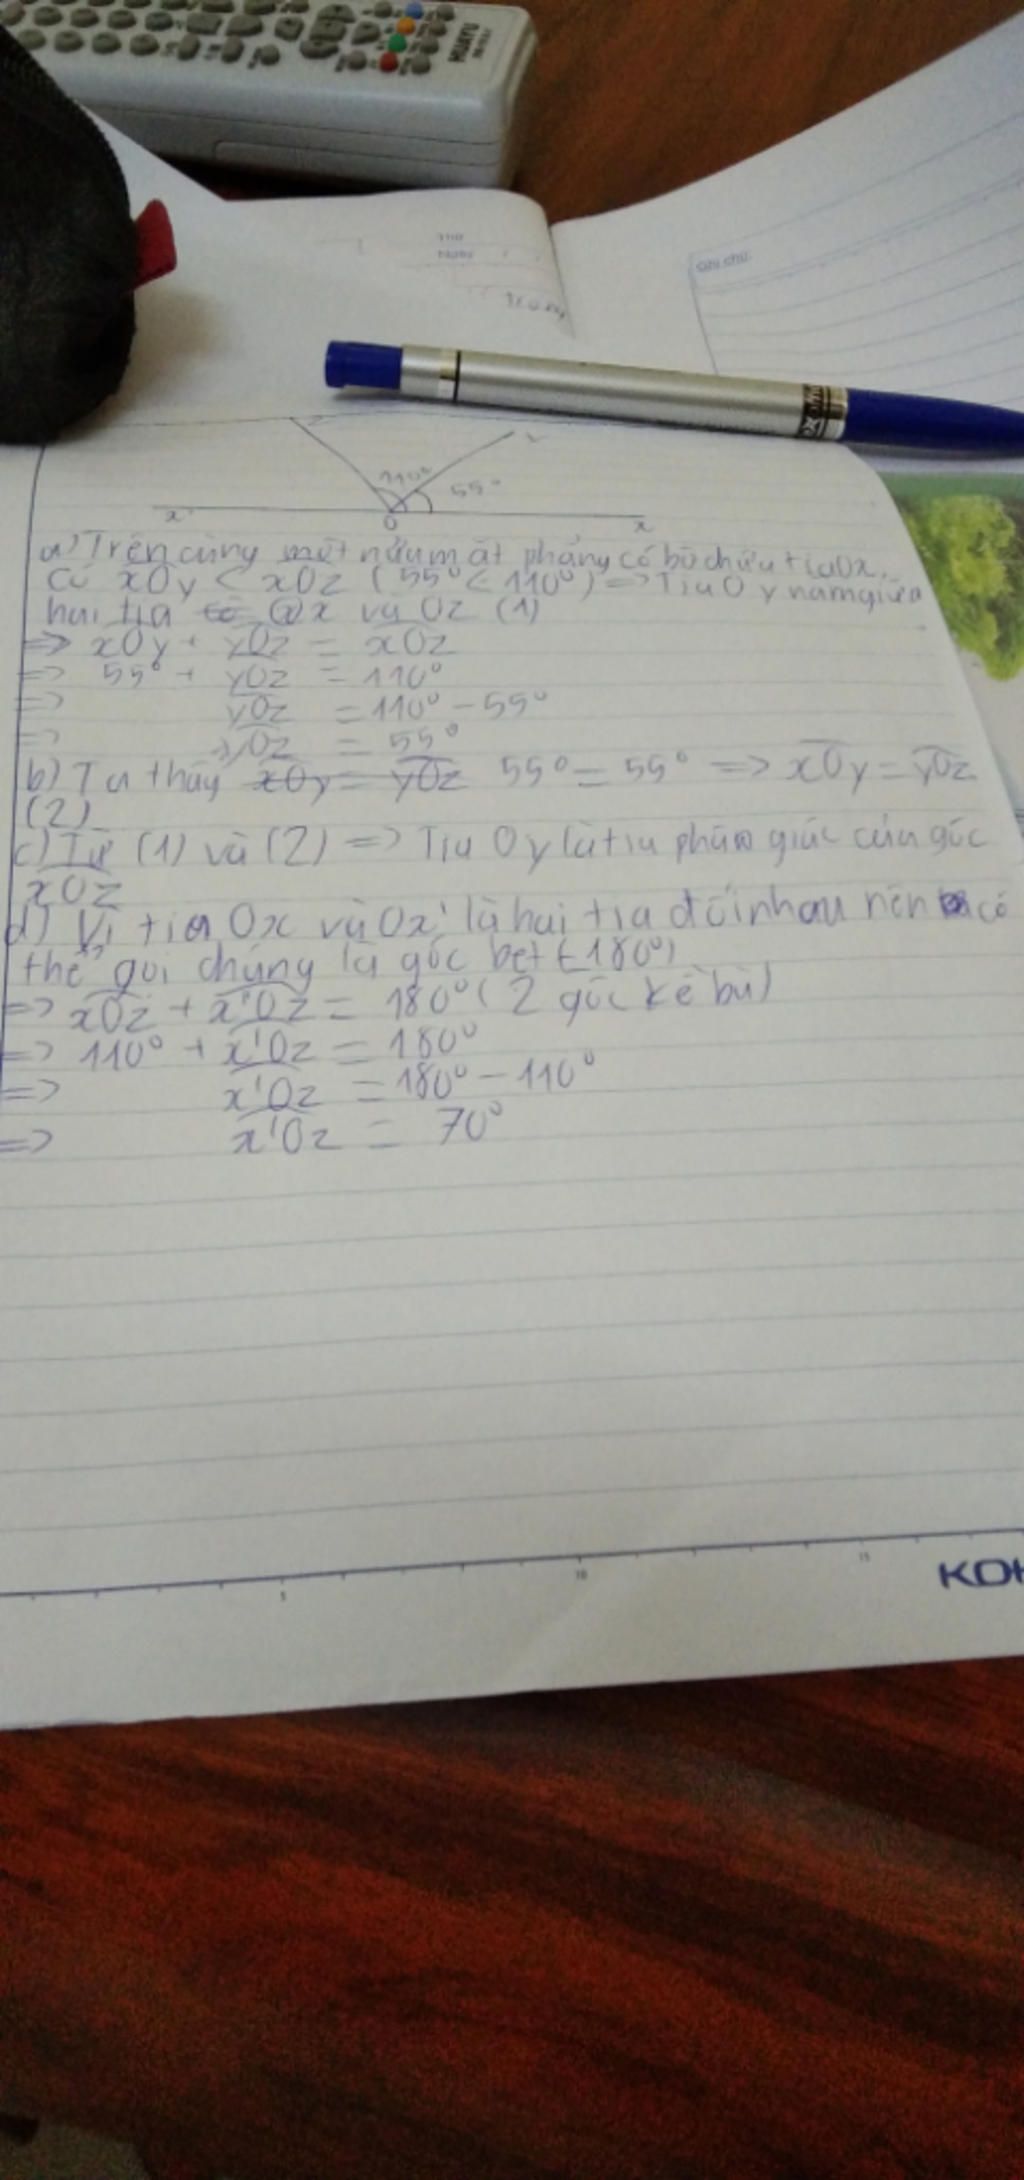 HUAYU
Thứ
Ngày
Ghi chú:
z
y
110°
55°
x'
O
x
a) Trên cùng một nửa mặt phẳng có bờ chứa tia Ox,
Có xOy < xOz (55° < 110°) => Tia Oy nằm giữa
hai tia Ox và Oz (1)
=> xOy + yOz = xOz
=> 55° + yOz = 110°
=> yOz = 110° - 55°
=> yOz = 55°
b) Ta thấy xOy = yOz 55° = 55° => xOy = yOz
(2)
c) Từ (1) và (2) => Tia Oy là tia phân giác của góc
xOz
d) Vì tia Ox và Ox' là hai tia đối nhau nên có
thể gọi chúng là góc bẹt (180°)
=> xOz + x'Oz = 180° (2 góc kề bù)
=> 110° + x'Oz = 180°
=> x'Oz = 180° - 110°
=> x'Oz = 70°
5 10 15